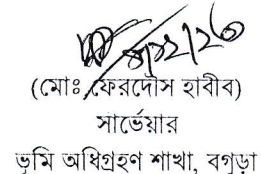 (মোঃ ফেরদৌস হাবীব)
সার্ভেয়ার
ভূমি অধিগ্রহণ শাখা, বগুড়া